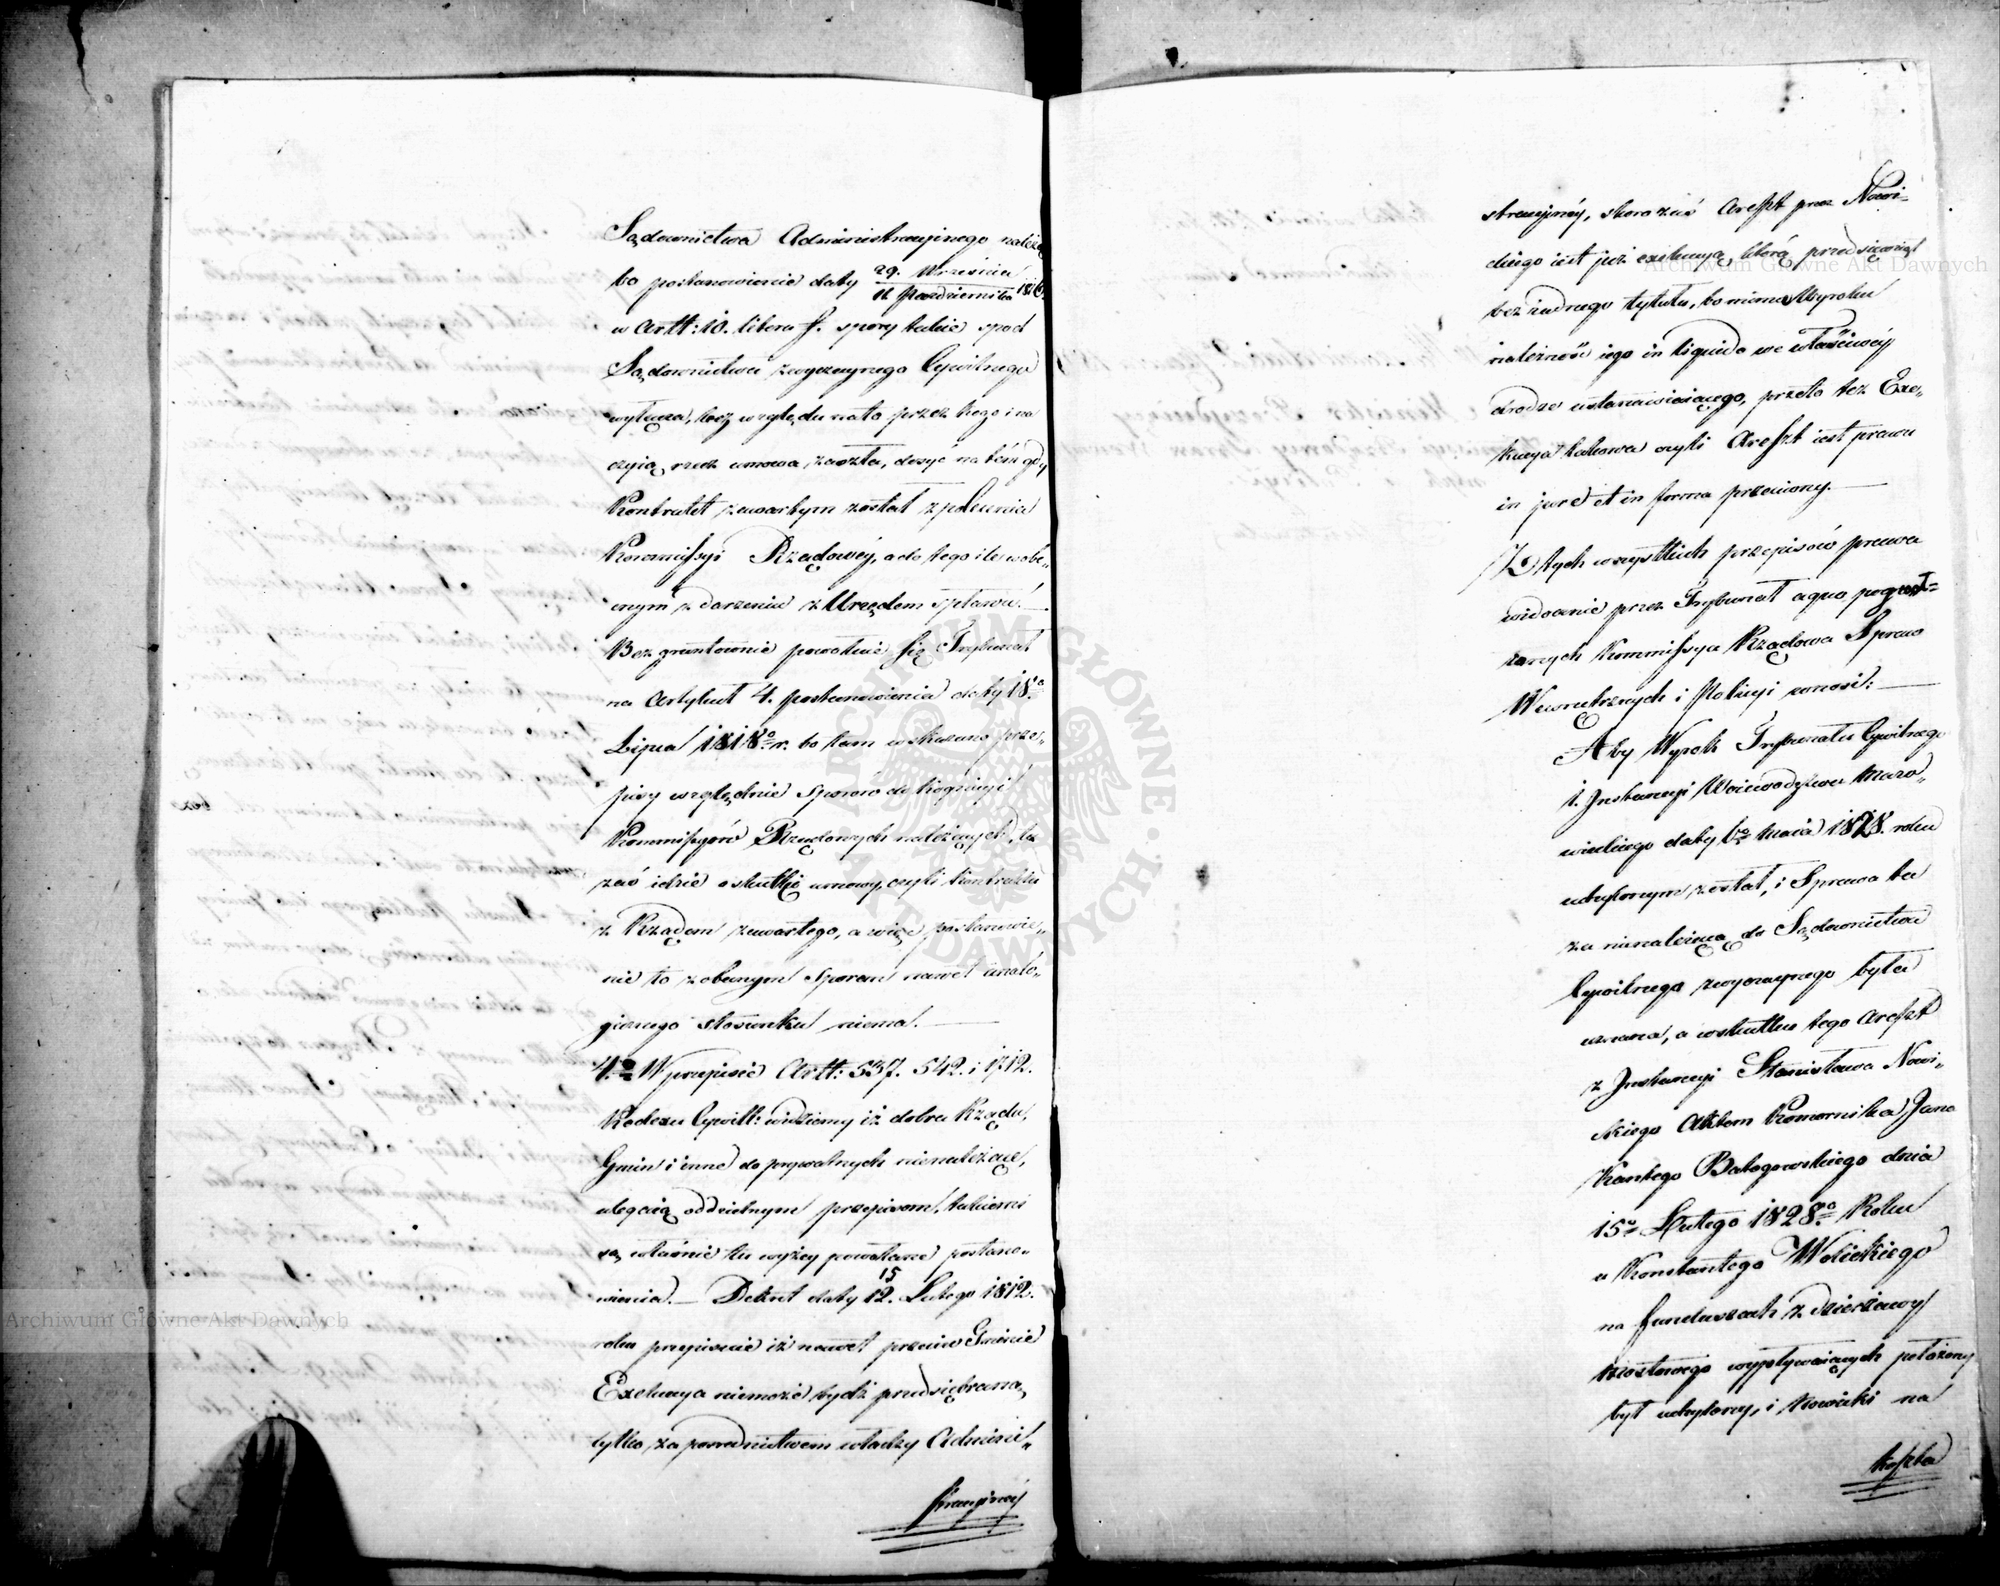 Sądownictwa Administracyjnego należą
bo postanowienie daty 29. Września
11 Października 1816.
w Artt: 10. litera f. spory takie spod
Sądownictwa zwyczaynego Cywilnego
wyłącza, bez względu na to przez kogo i na
czyią rzecz umowa zaszła, dosyć na tém gdy
Kontrakt zawartym został z polecenia
Kommissyi Rządowéy, a do tego ile w obe„
cnym zdarzeniu z Urzędem Spławu. —
Bezgruntownie powołuie się Trybunał
na Artykuł 4. postanowienia daty 18o
Lipca 1818o r. bo tam wskazano prze„
pisy względnie Sporów do kognicyi
Kommissyów Rządowych należących, tu
zaś idzie o skutki umowy czyli kontraktu
z Rządem zawartego, a więc postanowie„
nie to z obecnym Sporem nawet analo„
gicznego stosunku niema. —
4o W przepisie Artt: 537. 542. i 1712.
Kodexu Cywill: widziemy iż dobra Rządu,
Gmin i inne do prywatnych nienależące,
ulegaią oddzielnym przepisom, takiemi
są właśnie tu wyżey powołane postano„
wienia. — Dekret daty 12. 15 Lutego 1812.
roku przepisuie iż nawet przeciw Gminie
Exekucya niemoże bydź przedsiębrana,
tylko za posrednictwem władzy Admini„
stracyinéy
stracyjnéy, skoro zaś Areszt przez Nowi„
ckiego iest już exekucyą, którą przedsięwziął
bez żadnego tytułu, bo niema Wyroku
należność iego in liquido we właściwéy
drodze ustanawiaiącego, przeto też Exe„
kucya takowa czyli Areszt iest prawu
in jure et in forma przeciwny. —
Z tych wszystkich przepisów prawa
widocznie przez Trybunał a quo pogwał=
conych Kommissya Rządowa Spraw
Wewnętrznych i Policyi wnosi: —
Aby Wyrok Trybunału Cywilnego
1. Instancyi Woiewództwa Mazo„
wieckiego daty 6o Maia 1828. roku
uchylonym został, i Sprawa ta
za nienależącą do Sądownictwa
Cywilnego zwyczaynego była
uznana, a wskutku tego Areszt
z Instancyi Stanisława Nowi„
ckiego Aktem Komornika Jana
Kantego Bałogowskiego dnia
15o Lutego 1828o Roku
u Konstantego Wolickiego
na funduszach z dzierżawy
mostowego wypływaiących położony
był uchylony, i Nowicki na
koszta
Archiwum Główne Akt Dawnych
Archiwum Główne Akt Dawnych
ARCHIWUM GŁÓWNE AKT DAWNYCH